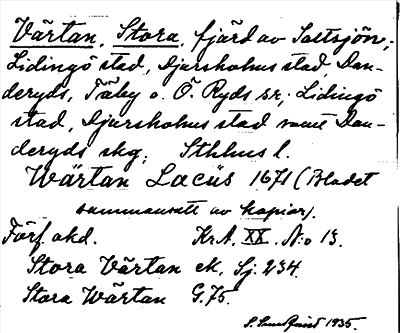 Värtan, Stora, fjärd av Saltsjön;
Lidingö stad, Djursholms stad, Dan-
deryds, Täby o. Ö. Ryds sr; Lidingö
stad, Djursholms stad samt Dan-
deryds skg; Sthlms l.
Wärtan Lacüs 1671 (Bladet
sammansatt av kopior).
Förf. okd. KrA. XX. N:o 13.
Stora Värtan ek, Sj: 234.
Stora Wärtan G.75.
S. Sundquist 1935.